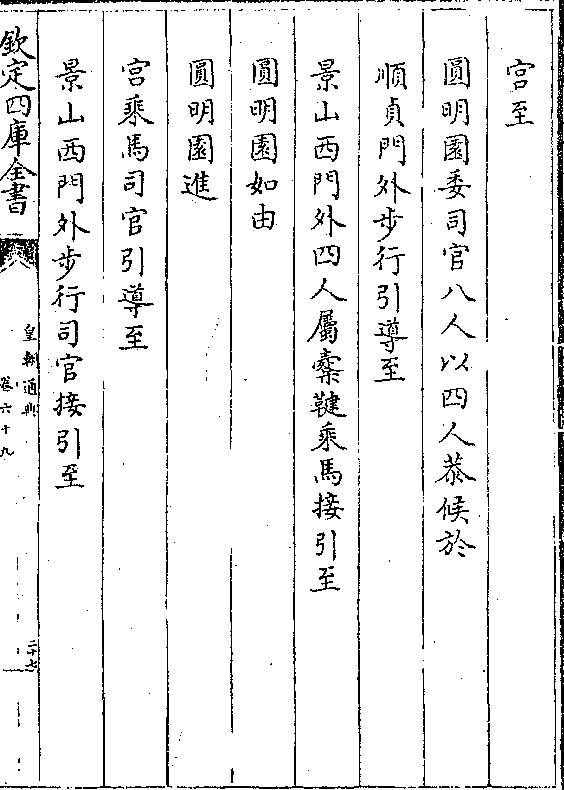 宮至
圓明園委司官八人以四人恭候於
順貞門外步行引導至
景山西門外四人屬櫜鞬乘馬接引至
圓明園如由
圓明園進
宮乘馬司官引導至
景山西門外步行司官接引至
欽定四庫全書
皇朝通典
卷六十九
二十七